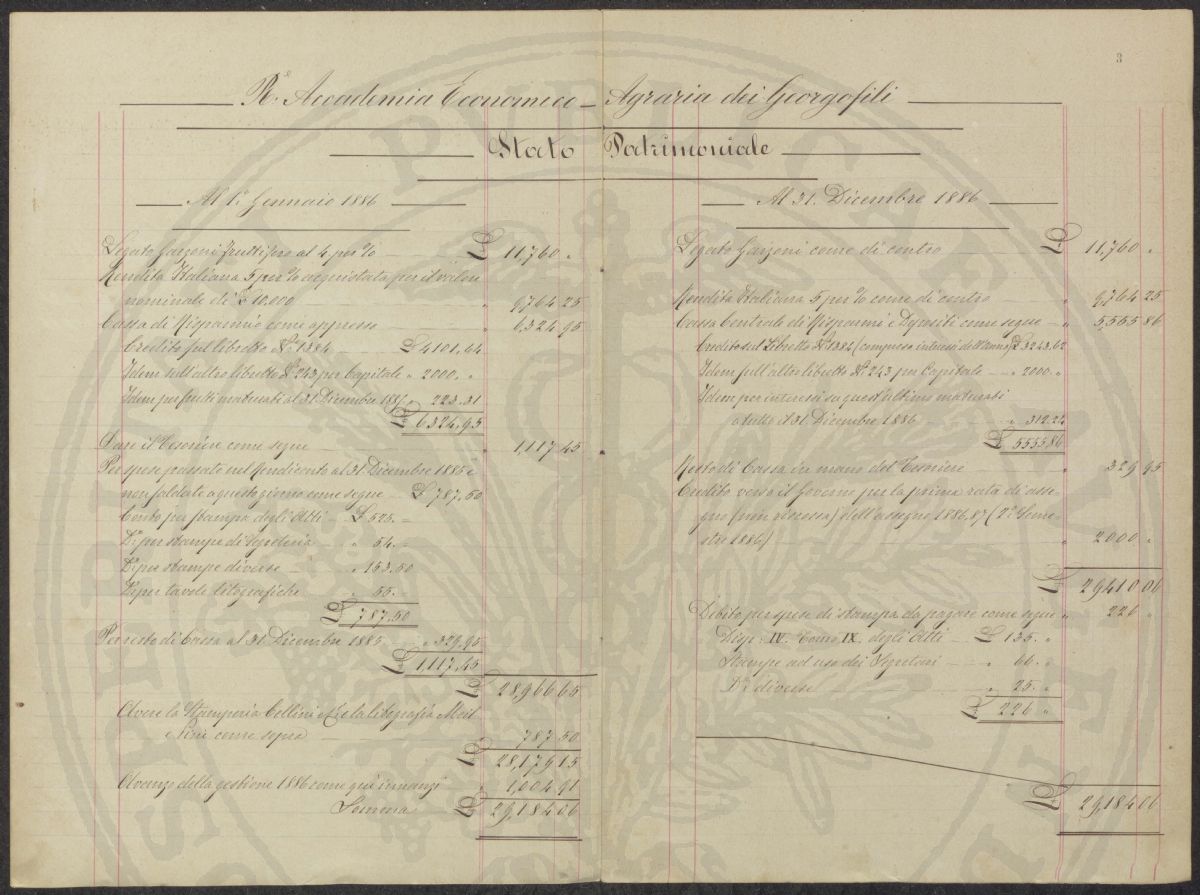 3
R.e Accademia Economico-Agraria dei Georgofili
Stato Patrimoniale
Al 1.o Gennaio 1886
Legato Garzoni fruttifero al 4. per % £ 11,760 "
Rendita Italiana 5 per % acquistata per il valore
nominale di £ 10,000 " 9,764 25
Cassa di Risparmio come appresso " 6,324 95
Credito sul libretto N.o 1384 £ 4101,64
Idem sull'altro libretto N.o 243 per Capitale " 2000. "
Idem per frutti maturati al 31 Dicembre 1885 " 223.31
£ 6324,95
Dare il Tesoriere come segue " 1,117 45
Per spese passate nel Rendiconto al 31 Dicembre 1885 e
non saldate a questo giorno come segue £ 787,50
Conto per stampa degli Atti £ 525. =
D.o per stampe di Segreteria " 54. =
D.o per stampe diverse " 153.50
D.o per tavole litografiche " 55. =
£ 787,50
Per resto di Cassa al 31 Dicembre 1885 " 329,95
£ 1,117,45
£ 28,966 65
Avere la Stamperia Cellini e C. e la litografia
e Pini come sopra 787 50
£ 28,179 15
Avanzo della gestione 1886 come qui innanzi " 1,004 91
Somma £ 29,184 06
Al 31. Dicembre 1886
Legato Garzoni come di contro £ 11,760 "
Rendita Italiana 5 per % come di contro " 9,764 25
Cassa Centrale di Risparmi e Depositi come segue " 5,555 86
Credito sul Libretto N.o 1384 (compresi interessi dell'anno) £ 3243.62
Idem sull'altro libretto N.o 243 per Capitale " 2000. "
Idem per interessi su quest'ultimo maturati
a tutto il 31 Dicembre 1886 " 312.24
£ 5555,86
Resto di Cassa in mano del Tesoriere " 329 95
Credito verso il Governo per la prima rata di asse-
gno (non riscossa) dell'assegno 1886.87 (2.o Seme-
stre 1886) " 2000 "
£ 29,410 06
Debito per spese di stampa da pagare come segue " 226 "
Disp: IV. Tomo IX. degli Atti £ 135. "
Stampe ad uso dei Segretari " 66. "
D.e diverse " 25. "
£ 226 "
£ 29,184 06